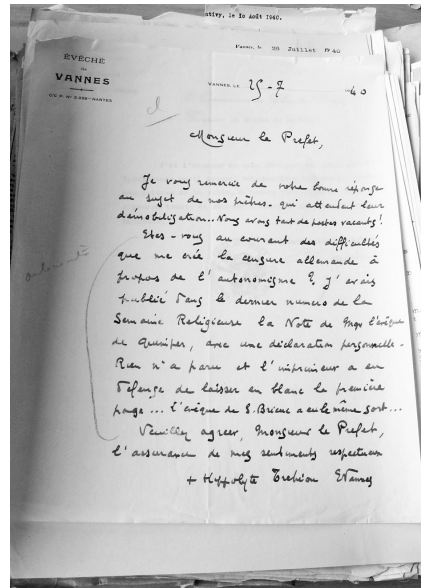 ntivy, le 10 Août 1940.
Vannes, le 28 Juillet 1940
ÉVÊCHÉ
DE
VANNES
C/C.P. N° 2.
-NANTES
VANNES, LE 25-7 1940
Monsieur le Préfet,
Je vous remercie de votre bonne réponse
au sujet de nos prêtres qui attendent leur
démobilisation... Nous avons tant de postes vacants!
Etes-vous au courant des difficultés
que me crée la censure allemande à
propos de l'autonomisme ? J'avais
publié dans le dernier numéro de la
Semaine Religieuse la Note de Mgr l'évêque
de Quimper, avec une déclaration personnelle.
Rien n'a paru et l'imprimeur a eu
défense de laisser en blanc la première
page... l'évêque de S. Brieuc a eu le même sort...
Veuillez agréer, Monsieur le Préfet,
l'assurance de mes sentiments respectueux
+ Hippolyte Tréhiou